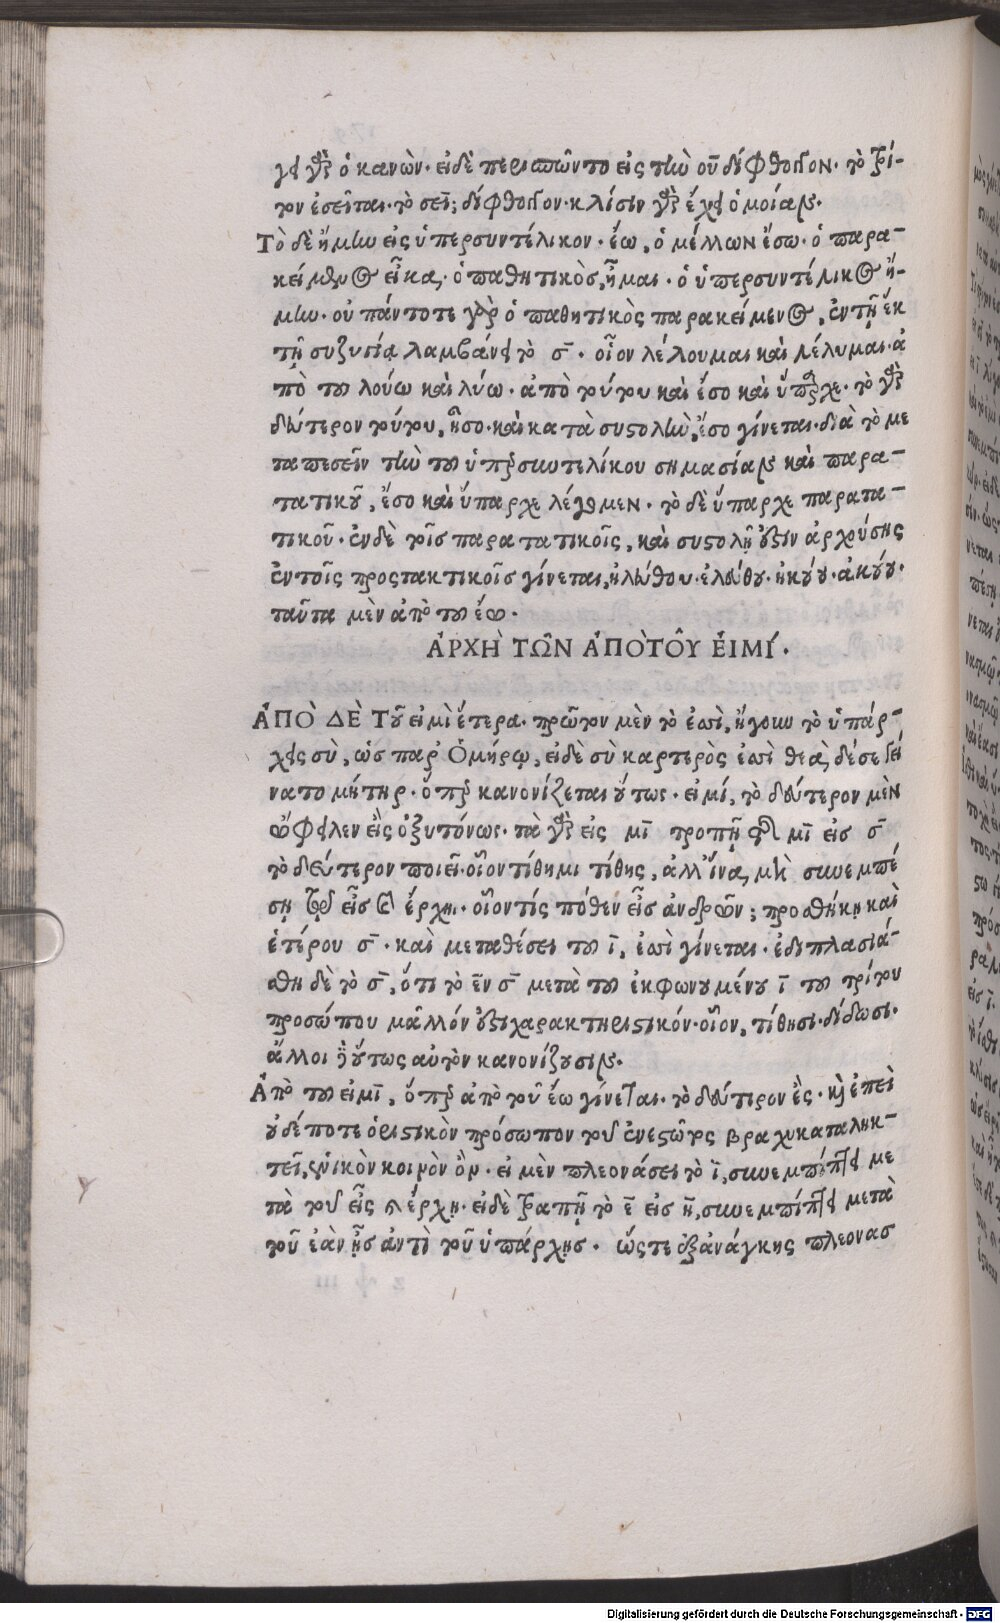 γει γὰρ ὁ κανών· εἰ δὲ περισπῶντο εἰς τὴν οῦ δίφθογγον· τὸ τρί-
τον ἐσεῖται· τὸ σεῖ; δίφθογγον· κλίσιν γὰρ ἔχει ὁμοίαν.
Τὸ δὲ ἤμην εἰς ὑπερσυντέλικον· ἕω, ὁ μέλλων ἔσω· ὁ παρα-
κείμενος εἶκα· ὁ παθητικὸς, ἧμαι· ὁ ὑπερσυντέλικος ἤ-
μην· οὐ πάντοτε γὰρ ὁ παθητικὸς παρακείμενος, ἐν τῇ ἕκ
τῃ συζυγίᾳ λαμβάνει τὸ σ̄· οἷον λέλουμαι καὶ λέλυμαι· ἀ
πὸ του λούω καὶ λύω· ἀπὸ τούτου καὶ ἔσο καὶ ὕπαρχε· τὸ γὰρ
δεύτερον τούτου, ἦσο· καὶ κατὰ συστολὴν, ἔσο γίνεται· διὰ τὸ με
ταπεσεῖν τὴν του ὑπερσυντελίκου σημασίαν καὶ παρα-
τατικοῦ, ἔσο καὶ ὕπαρχε λέγομεν· τὸ δὲ ὕπαρχε παρατα-
τικοῦ· ἐν δὲ τοῖς παρατατικοῖς, καὶ συστολή ἐστιν ἀρχούσης
ἐν τοῖς προστακτικοῖς γίνεται, ἠλεύθου· ἐλεύθου· ἠκούου· ἀκούου·
ταῦτα μὲν ἀπὸ του ἕω.
ἈΡΧῊ ΤΩ͂Ν ἈΠῸΤΟΥ͂ ἘΙΜΊ.
ἈΠῸ ΔῈ Τοῦ εἰμὶ ἕτερα· πρῶτον μὲν τὸ ἐσσὶ, ἤγουν τὸ ὑπάρ-
χεις σὺ, ὡς παρ Ὁμήρῳ, εἰ δὲ σὺ καρτερὸς ἐσσὶ θεὰ, δέ σε γεί
νατο μήτηρ· ὅπερ κανονίζεται οὕτως· εἰμί, τὸ δεύτερον μὲν
ὤφειλεν εἲς ὀξυτόνως· τὰ γὰρ εἰς μῑ τροπῇ τοῦ μῑ εἰς σ̄
τὸ δεύτερον ποιεῖ· οἷον τίθημι τίθης, ἀλλ' ἵνα, μὴ συνεμπέ
σῃ τῷ εἶς τὸ ἔρχῃ· οἷον τίς πόθεν εἶς ἀνδρῶν; προσθήκῃ καὶ
ἑτέρου σ̄· καὶ μεταθέσει του ῑ, ἐσσὶ γίνεται· ἐδιπλασιά-
σθη δὲ τὸ σ̄, ὅτι τὸ ἓν σ̄ μετὰ του ἐκφωνουμένου ῑ του τρίτου
προσώπου μᾶλλόν ἐστι χαρακτηριστικόν· οἷον, τίθησι· δίδωσι·
ἄλλοι δὲ οὕτως αὐτὸν κανονίζουσιν.
Ἀπὸ του εἰμῑ, ὅπερ ἀπὸ τοῦ ἔω γίνεται· τὸ δεύτερον ἒς· καὶ ἐπεὶ
οὐδέποτε ὁριστικὸν πρόσωπον τοῦ ἐνεστῶτος βραχυκαταληκ-
τεῖ, ἑνικὸν κοινὸν ὂν· εἰ μὲν πλεονάσει τὸ ῑ, συνεμπίπτει με
τὰ τοῦ εἶς τὸ ἔρχῃ· εἰ δὲ τραπῇ τὸ ε̄ εἰς η̄, συνεμπίπτει μετὰ
τοῦ ἐὰν ᾖς ἀντὶ τοῦ ὑπάρχῃς· ὥςτε ἐξ ἀνάγκης πλεονασ
Digitalisierung gefördert durch die Deutsche Forschungsgemeinschaft · DFG